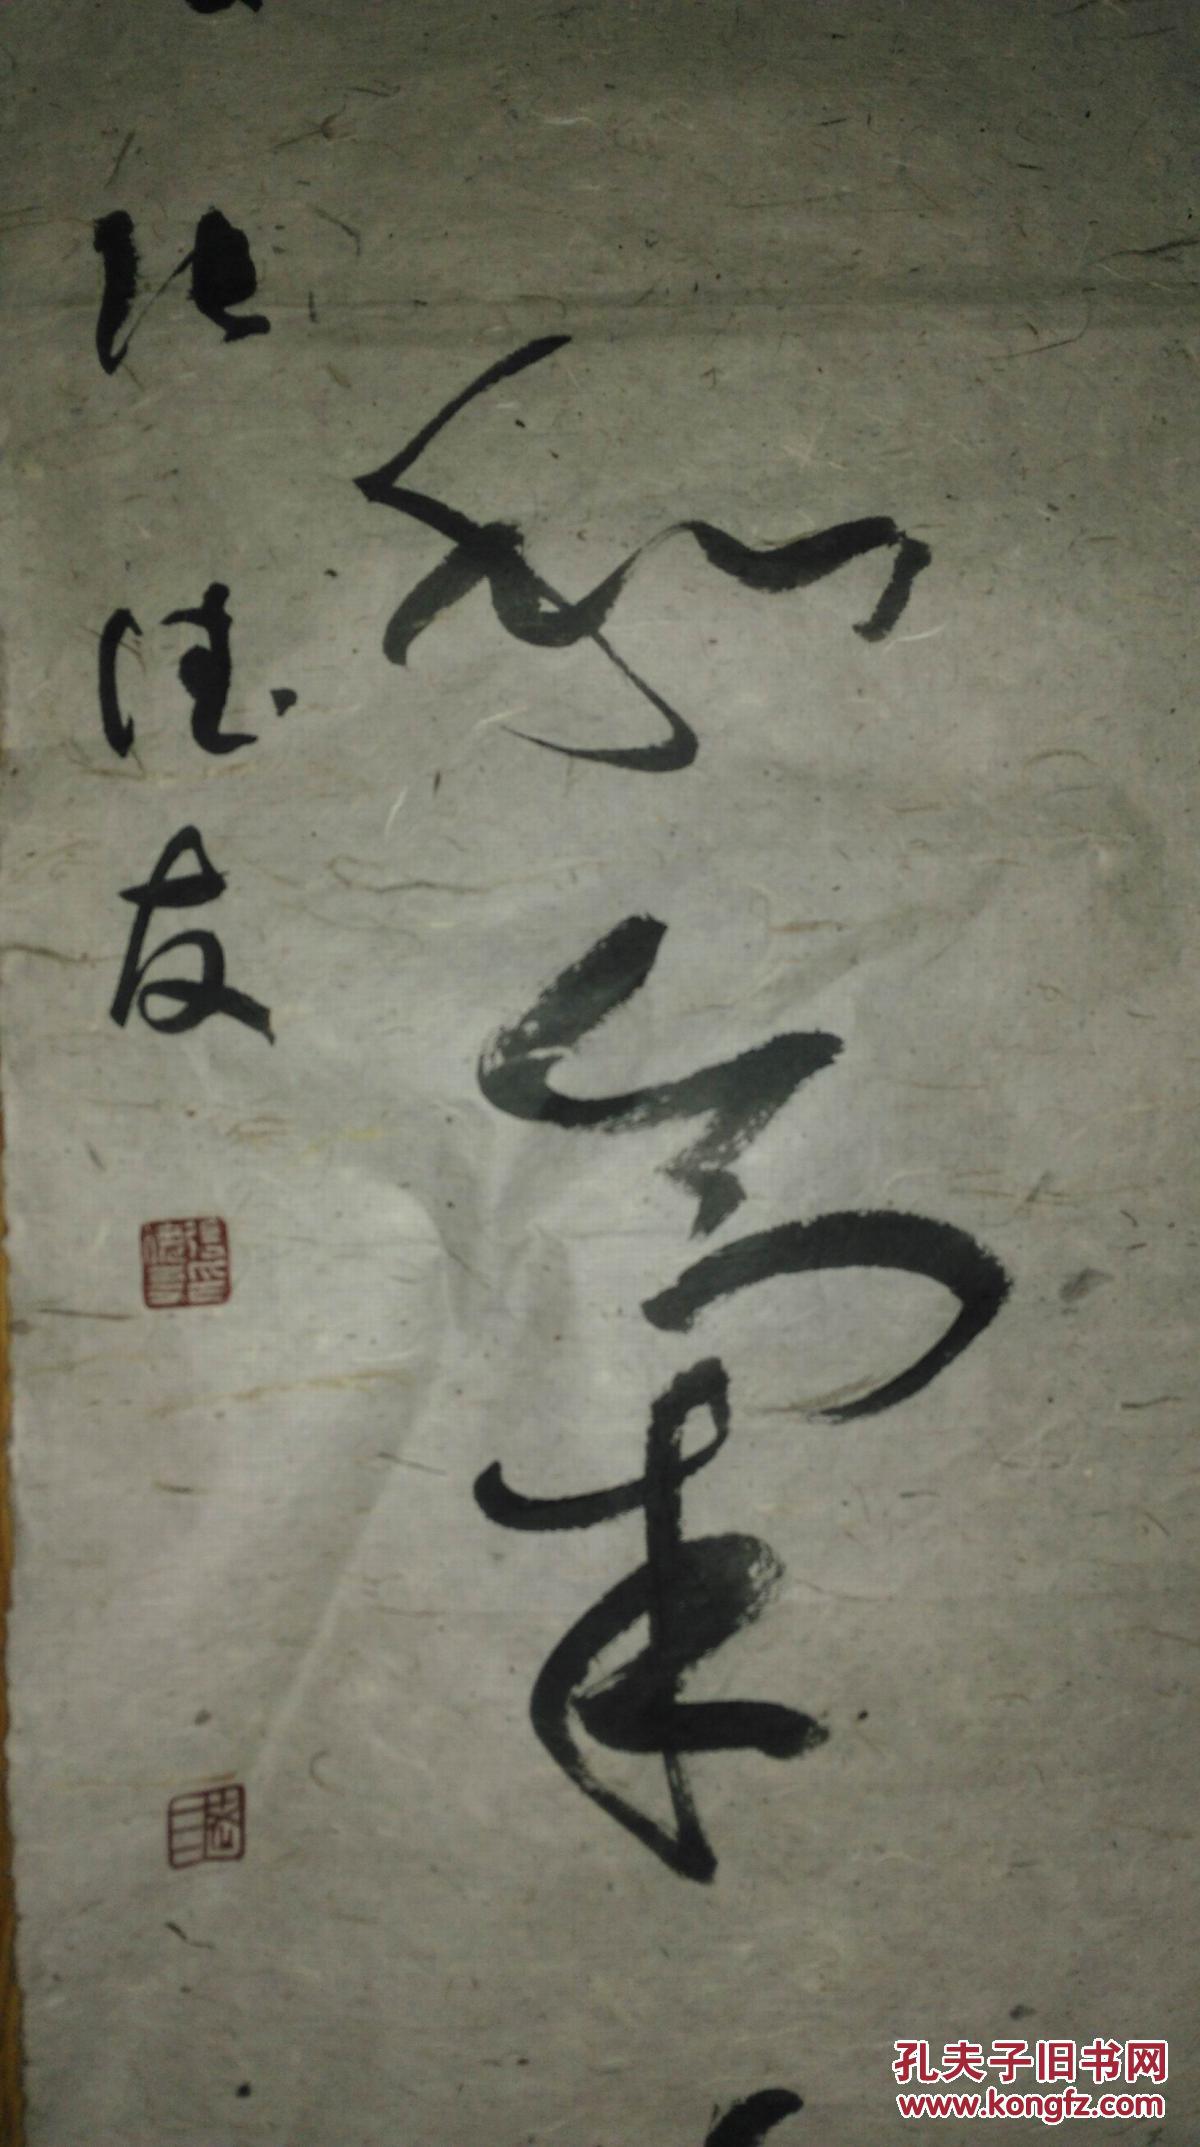 和氣
张德友
孔夫子旧书网
www.kongfz.com